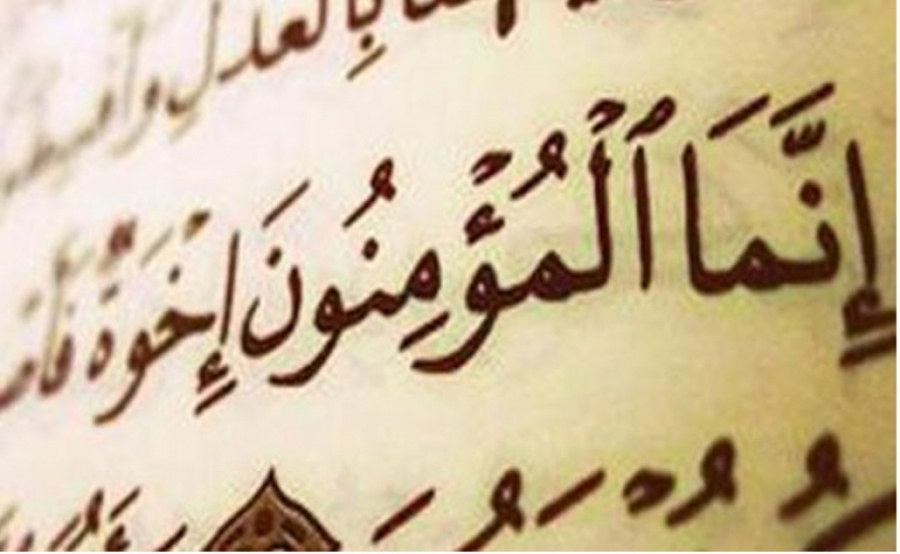 بِالْعَدْلِ وَأَقْسِطُ
إِنَّمَا ٱلْمُؤْمِنُونَ إِخْوَةٌ فَأَصْ